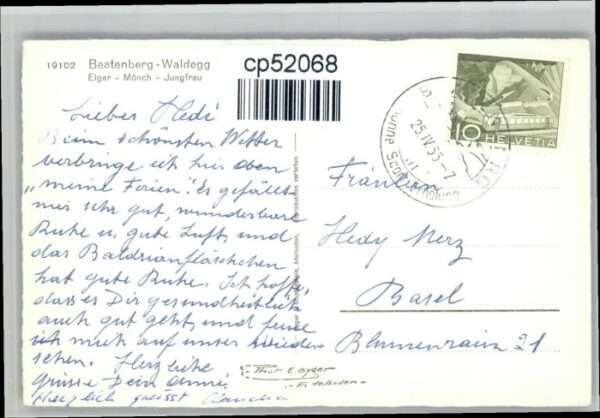 19102 Beatenberg-Waldegg
Eiger - Mönch - Jungfrau
cp52068
10 HELVETIA
25.IV.55-7
Lieber Hedi
Beim schönsten Wetter
verbringe ich hier oben
„meine Ferien". Es gefällt
mir sehr gut, wunderbare
Ruhe u. gute Luft und
das Baldrianfläschchen
hat gute Ruhe. Ich hoffe,
dass es Dir gesundheitlich
auch gut geht, und freue
ich mich auf unser wieder-
sehen. Herzliche
Grüsse Dein
Herzlich grüsst
Fräulein
Hedy Merz
Basel
Blumenrain 21